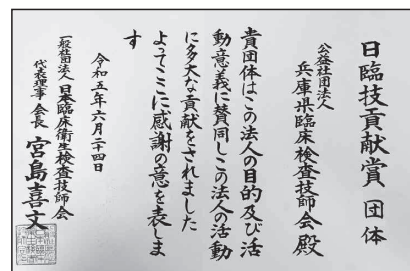 日臨技貢献賞 団体
公益社団法人
兵庫県臨床検査技師会 殿
貴団体はこの法人の目的及び活
動意義に賛同しこの法人の活動
に多大な貢献をされました
よってここに感謝の意を表しま
す
令和五年六月二十四日
一般社団法人 日本臨床衛生検査技師会
代表理事 会長 宮島喜文